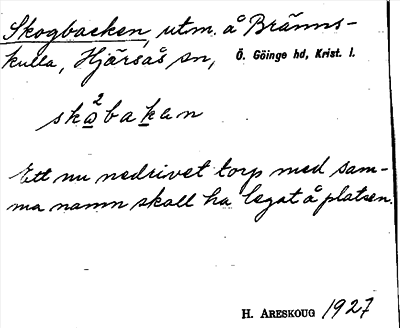 Skogbacken, utm. å Bränns-
kulla, Hjärsås sn, Ö. Göinge hd, Krist. l.
skạ²bakan
Ett nu nedrivet torp med sam-
ma namn skall ha legat å platsen.
H. ARESKOUG 1927